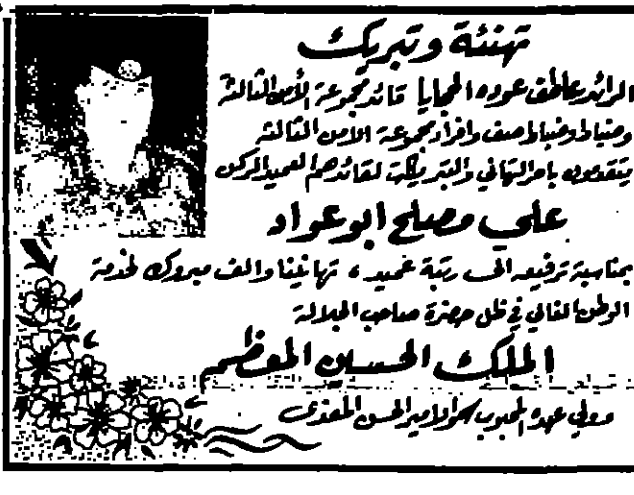 تهنئة وتبريك
الرائد عاطف عوده الحجايا قائد مجموعة الأمن الثالثة
وضباط وضباط صف وافراد مجموعة الامن الثالثة
يتقدمون باحر التهاني والتبريكات لقائدهم العميد الركن
علي مصلح ابو عواد
بمناسبة ترفيعه الى رتبة عميد، تهانينا والف مبروك لخدمة
الوطن الغالي في ظل حضرة صاحب الجلالة
الملك الحسين المعظم
وولي عهده المحبوب سمو الامير الحسن المفدى